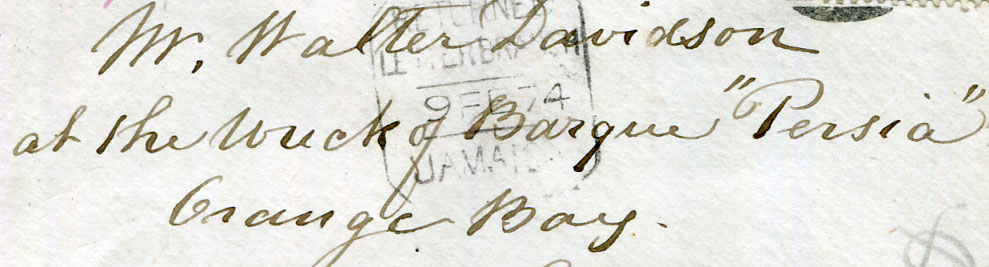 Mr. Walter Davidson
at the Wreck of Barque "Persia"
Orange Bay.
RETURNED
LETTER BRANCH
9 FE 74
JAMAICA